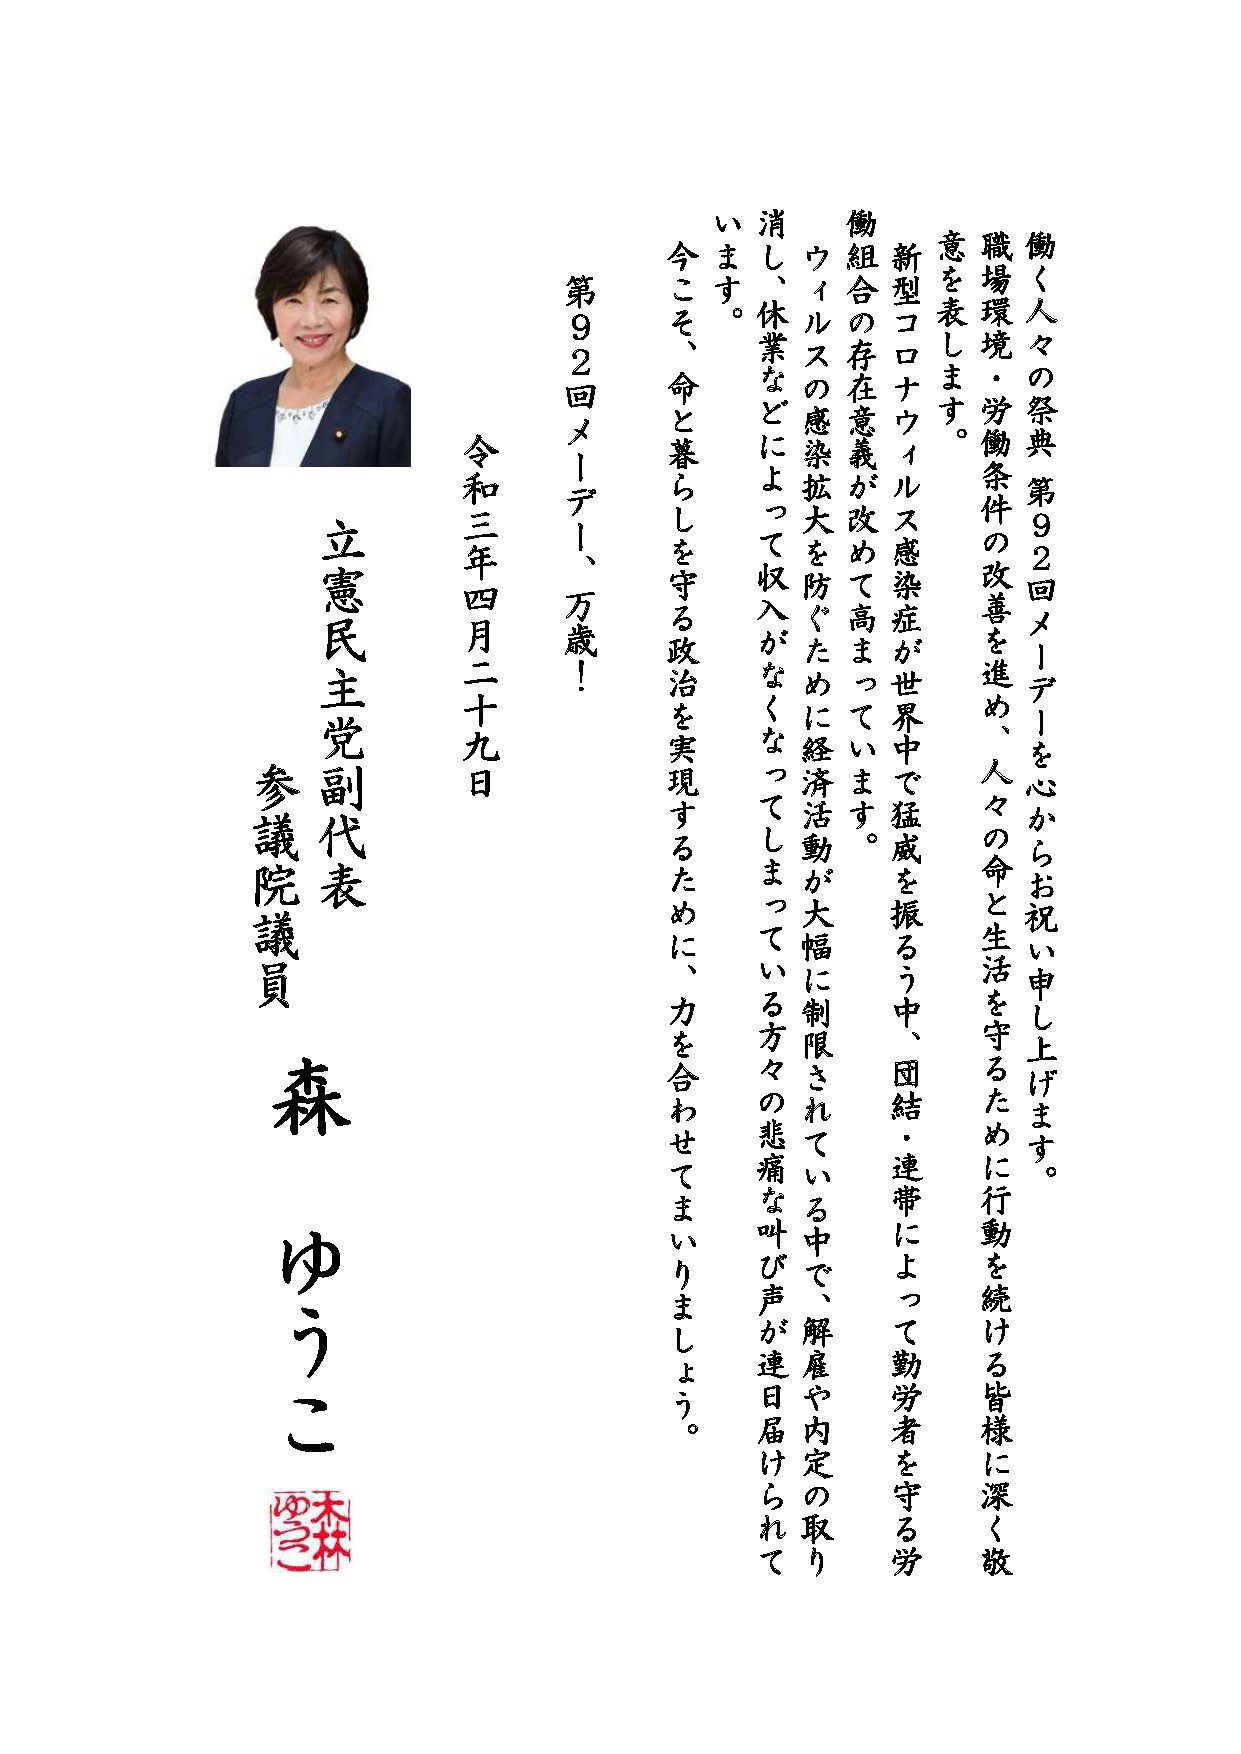 働く人々の祭典 第92回メーデーを心からお祝い申し上げます。
職場環境・労働条件の改善を進め、人々の命と生活を守るために行動を続ける皆様に深く敬
意を表します。
新型コロナウィルス感染症が世界中で猛威を振るう中、団結・連帯によって勤労者を守る労
働組合の存在意義が改めて高まっています。
ウィルスの感染拡大を防ぐために経済活動が大幅に制限されている中で、解雇や内定の取り
消し、休業などによって収入がなくなってしまっている方々の悲痛な叫び声が連日届けられて
います。
今こそ、命と暮らしを守る政治を実現するために、力を合わせてまいりましょう。
第92回メーデー、万歳！
令和三年四月二十九日
立憲民主党副代表
参議院議員
森 ゆうこ
森
ゆうこ